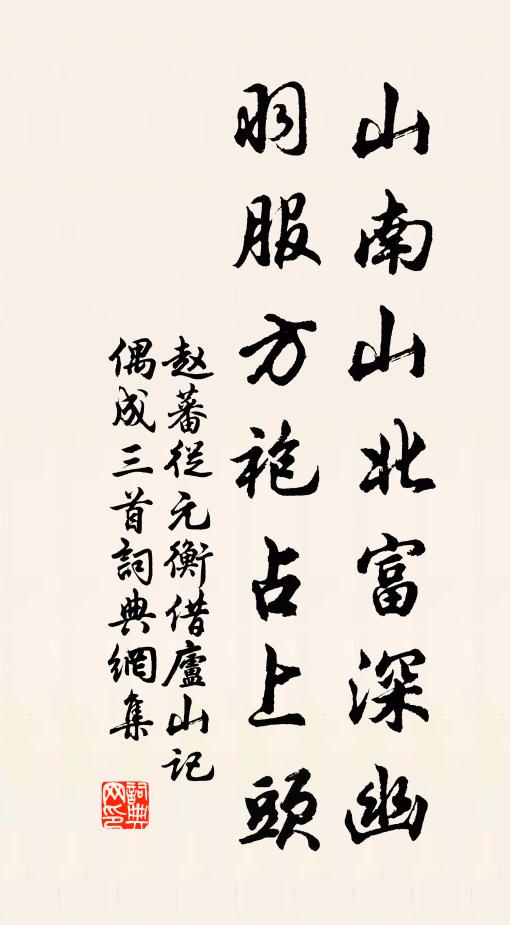 山南山北富深幽
羽服方袍占上頭
赵蕃從元衡借廬山記
偶成三首詞典網集
詞典
网印